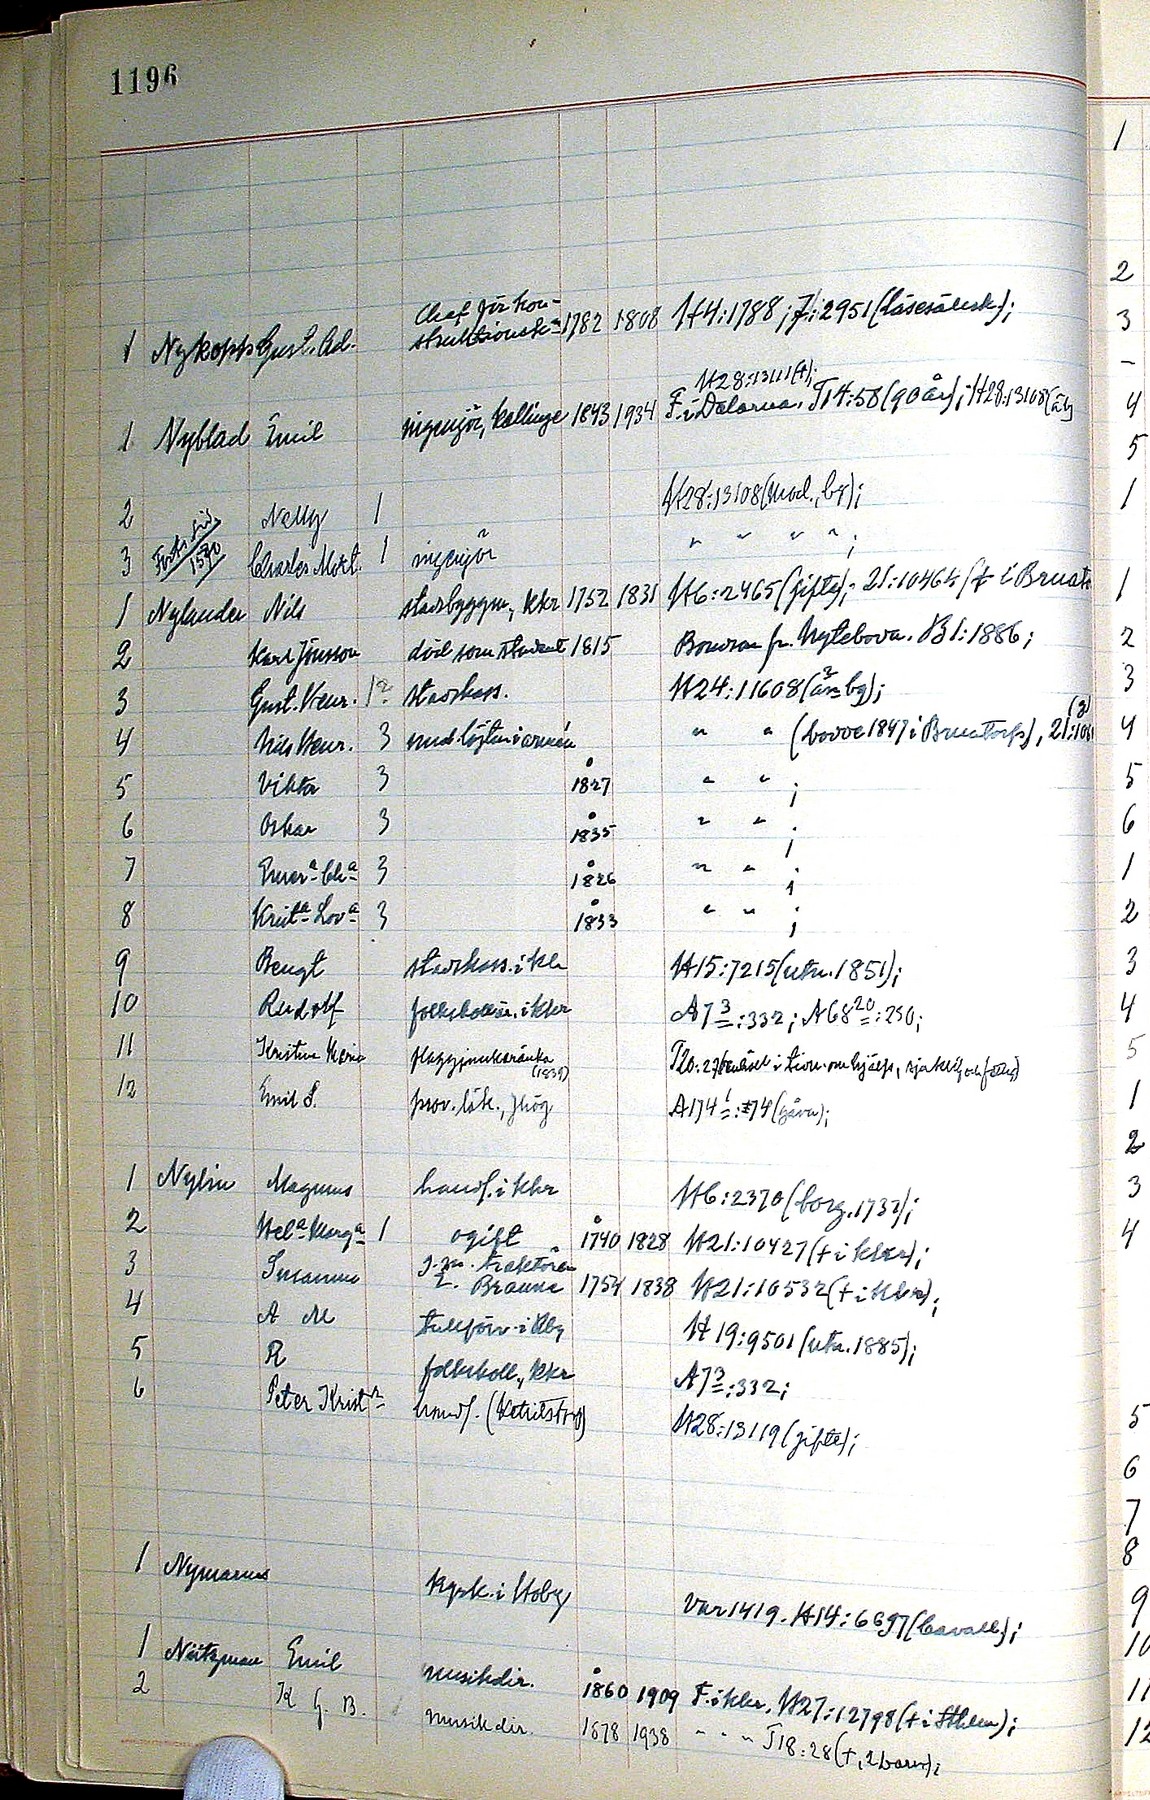 1196
Chef för kon-
1 Nykopp Gust. Ad. struktionsk= 1782 1808 H4:1788; J:2951 (läsesällsk.);
H28:13111 (†);
1 Nyblad Emil ingenjör, Kallinge 1843 1934 F. i Dalarna. T14:58 (90 år); H28:13108 (
2 Nelly 1 H28:13108 (mod., bg);
Forts. sid
1570
3 Charles Mort. 1 ingenjör " " " " ;
1 Nylander Nils stadsbyggm., Kkr 1752 1831 H6:2465 (gifte); 21:10464 († i Bruat
2 Karl Jönsson död som student 1815 Bonson fr. Nytebova. B1:1886;
3 Gust. Henr. 1? stadskass. H24:11608 (
4 Nils Henr. 3 und.löjtn. i armén " " (bodde 1847 i Bruatorp), 21:106
(g)
5 Viktor 3 1827 " " ;
6 Oskar 3 1835 " " ;
7 3 1826 " " ;
8 Krist.a Lov.a 3 1833 " " ;
9 Bengt stadskass. i Kkr H15:7215 (utn. 1851);
10 Rudolf folkskollär. i Kkr A7 3:332; A68 20:250;
11 Kristina Maria
(1839)
T20:27
12 Emil S. prov.läk., A174 1:74 (gåva);
1 Nylin Magnus handl. i Kkr H6:2370 (borg. 1737);
2 Hel.a Marg.a 1 ogift 1740 1828 H21:10427 († i Kkr);
3 Susanna g.m. traktören
L. Braune 1754 1838 H21:10532 († i Kkr);
4 A M i Kby H19:9501 (utn. 1885);
5 R folkskoll., Kkr A7 3:332;
6 Peter Krist.n handl. (Ketrilstorp) H28:13119 (gifte);
1 Nymanus Kyrk. i Hoby Var 1419. H14:6697 (Cavall);
1 Nützman Emil musikdir. 1860 1909 F. i Kkr. H27:12798 († i Sthlm);
2 K G. B. musikdir. 1878 1938 " " " T18:28 (†, 2 barn);
1
2
3
-
4
5
1
1
2
3
4
5
6
1
2
3
4
5
1
2
3
4
5
6
7
8
9
10
11
12